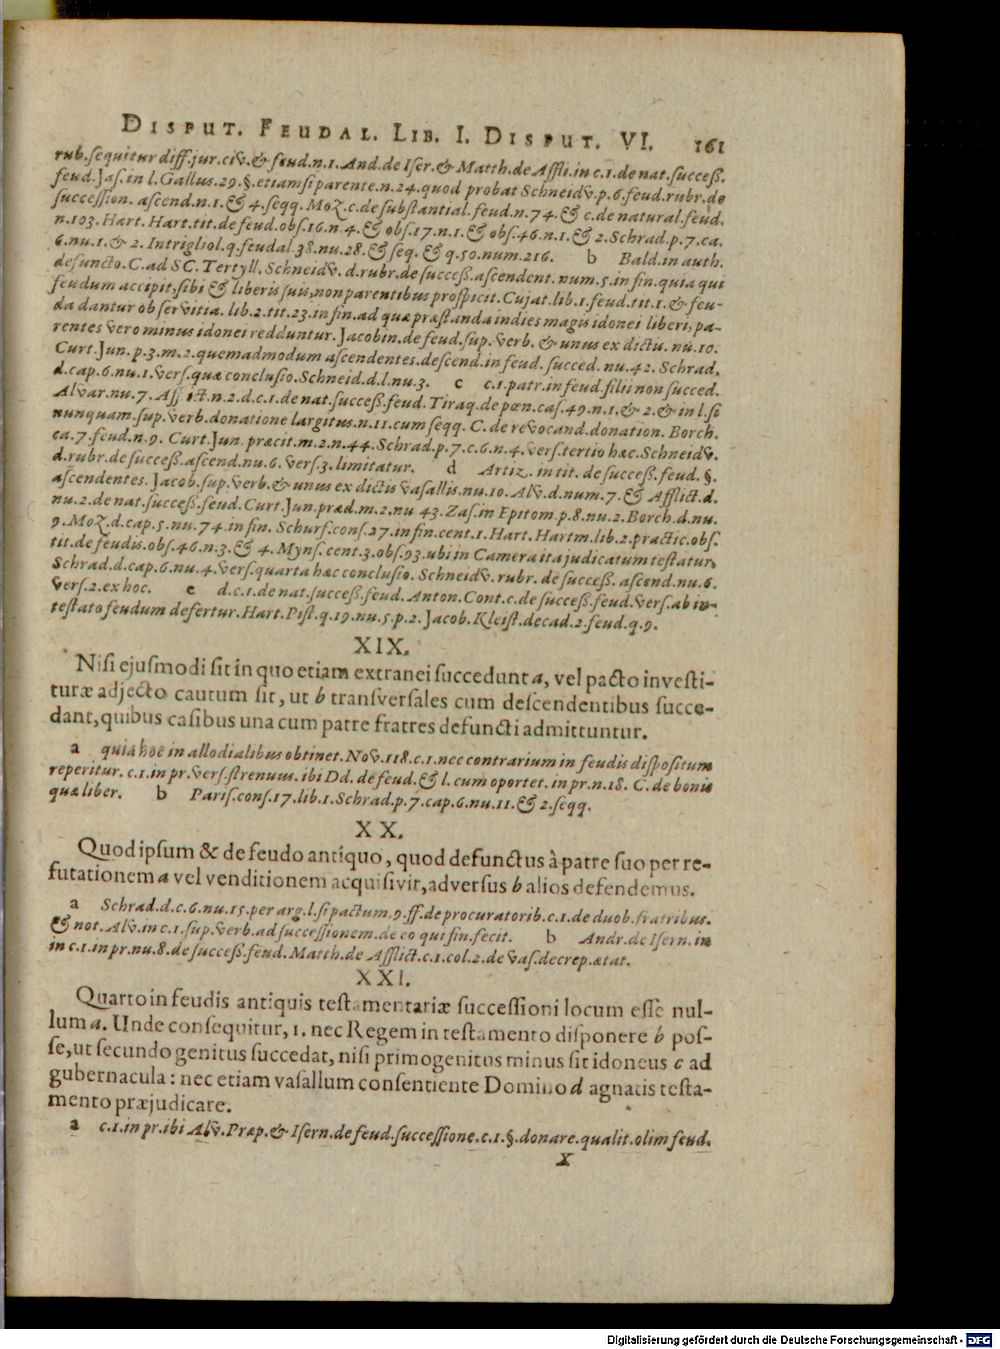 DISPUT. FEUDAL. LIB. I. DISPUT. VI. 161
rub. sequitur diff. jur. civ. & feud. n. 1. And. de Iser. & Matth. de Affli. in c. 1. de nat. success.
feud. Jas. in l. Gallus. 29. §. etiamsi parente. n. 24. quod probat Schneidv. p. 6. feud. rubr. de
succession. ascend. n. 1. & 4. seqq. Moz. c. de substantial. feud. n. 74. & c. de natural. feud.
n. 103. Hart. Hart. tit. de feud. obs. 16. n. 4. & obs. 17. n. 1. & obs. 46. n. 1. & 2. Schrad. p. 7. ca.
6. nu. 1. & 2. Intrigliol. q. feudal. 38. nu. 28. & seq. & q. 50. num. 216. b Bald. in auth.
defuncto. C. ad SC. Tertyll. Schneidv. d. rubr. de success. ascendent. num. 5. in fin. quia qui
feudum accipit, sibi & liberis suis, non parentibus prospicit. Cujat. lib. 1. feud. tit. 1. & feu-
da dantur ob servitia. lib. 2. tit. 23. in fin. ad quæ præstanda indies magis idonei liberi, pa-
rentes vero minus idonei redduntur. Jacobin. de feud. sup. verb. & unus ex dictis. nu. 10.
Curt. Jun. p. 3. m. 2. quemadmodum ascendentes. descend. in feud. succed. nu. 42. Schrad.
d. cap. 6. nu. 1. vers. quæ conclusio. Schneid. d. l. nu. 3. c c. 1. patr. in feud. filii non succed.
Alvar. nu. 7. Afflict. n. 2. d. c. 1. de nat. success. feud. Tiraq. de pœn. cas. 49. n. 1. & 2. & in l. si
nunquam. sup. verb. donatione largitus. n. 11. cum seqq. C. de revocand. donation. Borch.
ca. 7. feud. n. 9. Curt. Jun. præcit. m. 2. n. 44. Schrad. p. 7. c. 6. n. 4. vers. tertio hæc. Schneidv.
d. rubr. de success. ascend. nu. 6. vers. 3. limitatur. d Artiz. in tit. de success. feud. §.
ascendentes. Jacob. sup. verb. & unus ex dictis vasallis. nu. 10. Alv. d. num. 7. & Afflict. d.
nu. 2. de nat. success. feud. Curt. Jun. præd. m. 2. nu 43. Zas. in Epitom. p. 8. nu. 2. Borch. d. nu.
9. Moz. d. cap. 5. nu. 74. in fin. Schurf. cons. 27. in fin. cent. 1. Hart. Hartm. lib. 2. practic. obs.
tit. de feudis. obs. 46. n. 3. & 4. Myns. cent. 3. obs. 93. ubi in Camera ita judicatum testatur,
Schrad. d. cap. 6. nu. 4. vers. quarta hæc conclusio. Schneidv. rubr. de success. ascend. nu. 6.
vers. 2. ex hoc. e d. c. 1. de nat. success. feud. Anton. Cont. c. de success. feud. vers. ab in-
testato feudum defertur. Hart. Pist. q. 19. nu. 5. p. 2. Jacob. Kleist. decad. 2. feud. q. 9.
XIX.
Nisi ejusmodi sit in quo etiam extranei succedunt a, vel pacto investi-
turæ adjecto cautum sit, ut b transversales cum descendentibus succe-
dant, quibus casibus una cum patre fratres defuncti admittuntur.
a quia hoc in allodialibus obtinet. Nov. 118. c. 1. nec contrarium in feudis dispositum
reperitur. c. 1. in pr. vers. strenuus. ibi Dd. de feud. & l. cum oportet. in pr. n. 18. C. de bonis
quæ liber. b Paris. cons. 17. lib. 1. Schrad. p. 7. cap. 6. nu. 11. & 2. seqq.
XX.
Quod ipsum & de feudo antiquo, quod defunctus à patre suo per re-
futationem a vel venditionem acquisivit, adversus b alios defendemus.
a Schrad. d. c. 6. nu. 15. per arg. l. si pactum. 9. ff. de procuratorib. c. 1. de duob. fratribus.
& not. Alv. in c. 1. sup. verb. ad successionem. de eo qui fin. fecit. b Andr. de Isern. in
in c. 1. in pr. nu. 8. de success. feud. Matth. de Afflict. c. 1. col. 2. de vas. decrep. ætat.
XXI.
Quarto in feudis antiquis testamentariæ successioni locum esse nul-
lum a. Unde consequitur, 1. nec Regem in testamento disponere b pos-
se, ut secundo genitus succedat, nisi primogenitus minus sit idoneus c ad
gubernacula: nec etiam vasallum consentiente Domino d agnatis testa-
mento præjudicare.
a c. 1. in pr. ibi Alv. Præp. & Isern. de feud. successione. c. 1. §. donare. qualit. olim feud.
X
Digitalisierung gefördert durch die Deutsche Forschungsgemeinschaft - DFG